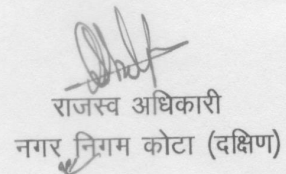 राजस्व अधिकारी
नगर निगम कोटा (दक्षिण)